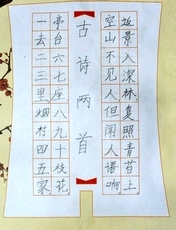 一去二三里烟村四五家
亭台六七座八九十枝花
古诗两首
空山不见人但闻人语响
返景入深林复照青苔上